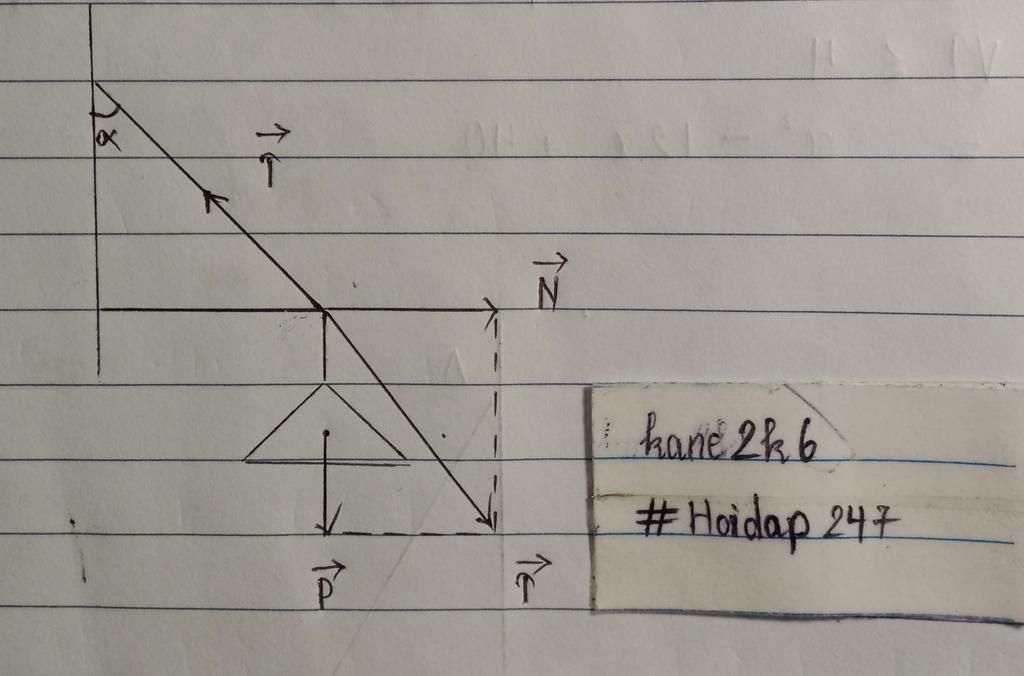 α
T
N
kane2k6
#Hoidap 247
P
T